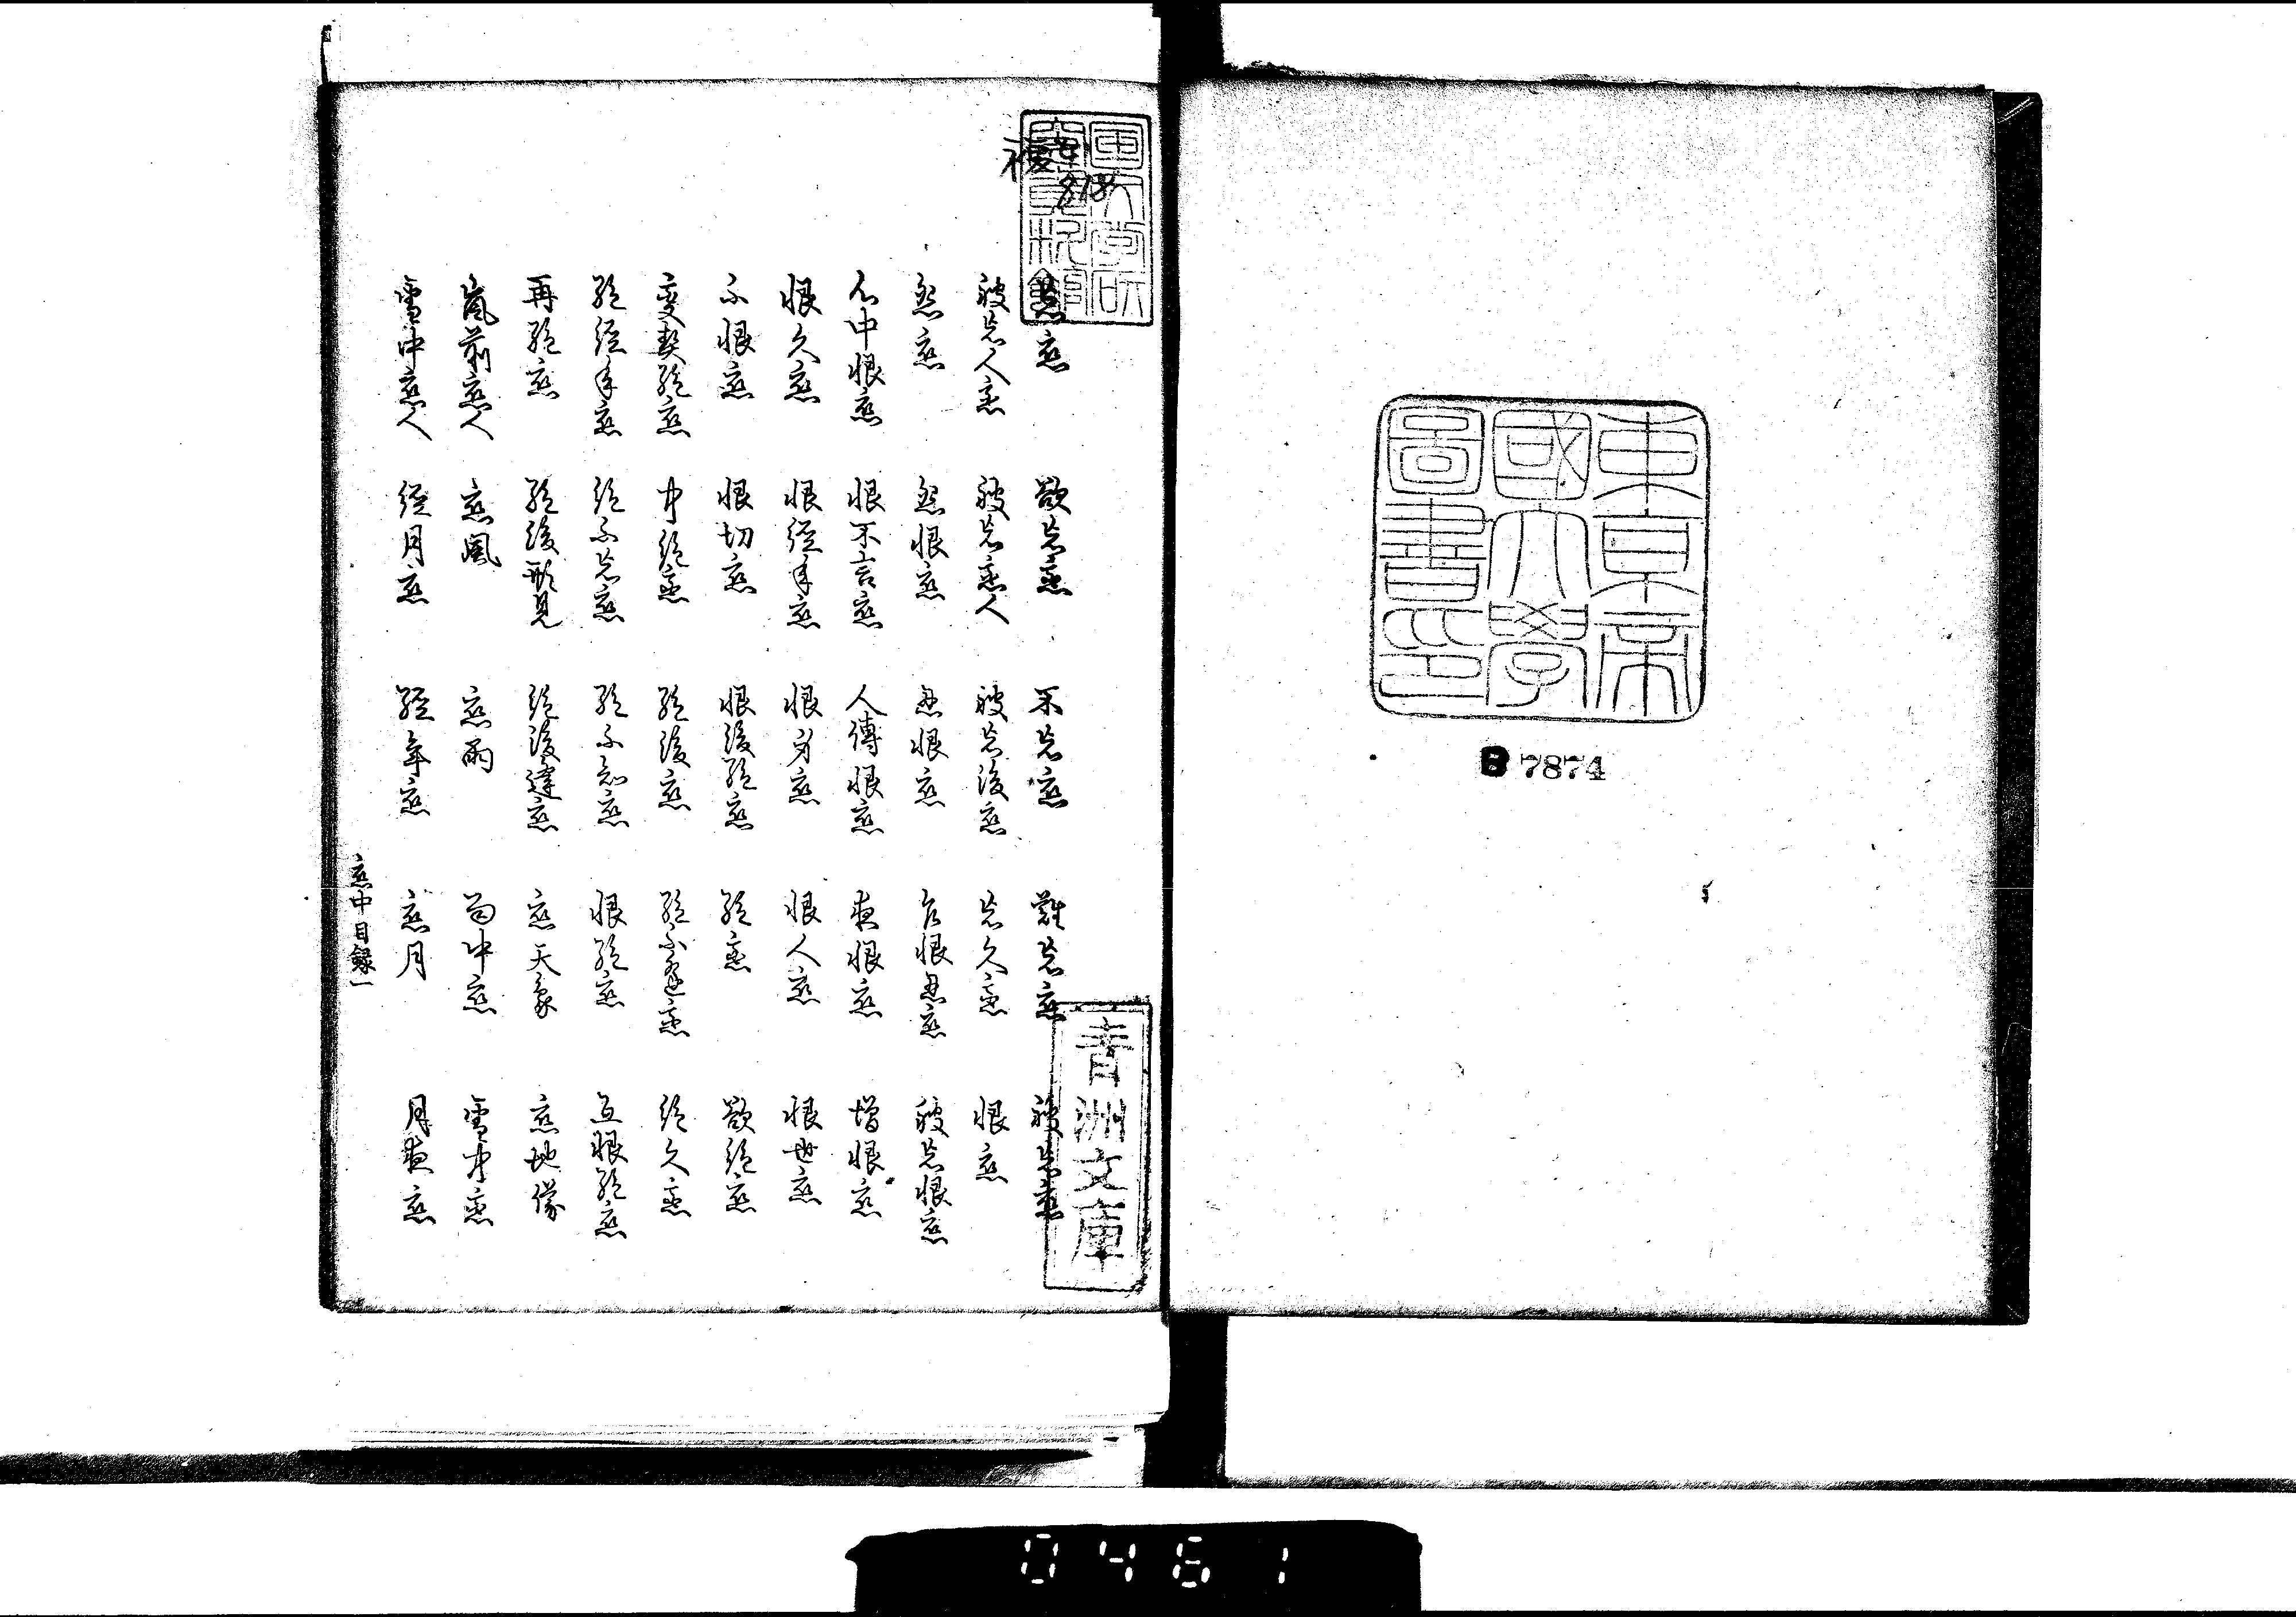 東京帝
國大學
圖書印
B 7874
青洲文庫
忘恋 欲忘恋 不忘恋 難忘恋 被忘恋
被忘人恋 被忘恋人 被忘後恋 忘久恋 恨恋
怨恋 怨恨恋 忍恨恋 乍恨忍恋 被忘恨恋
心中恨恋 恨不言恋 人傳恨恋 夜恨恋 増恨恋
恨久恋 恨経年恋 恨身恋 恨人恋 恨世恋
不恨恋 恨切恋 恨後絶恋 絶恋 欲絶恋
変契絶恋 中絶恋 絶後恋 絶不逢恋 絶久恋
絶経年恋 絶不忘恋 絶不知恋 恨絶恋 互恨絶恋
再絶恋 絶後形見 絶後逢恋 恋天象 恋地儀
嵐前恋人 恋風 恋雨 雨中恋 雪中恋
雪中恋人 経月恋 経年恋 恋月 月夜恋
恋中目録一
0461